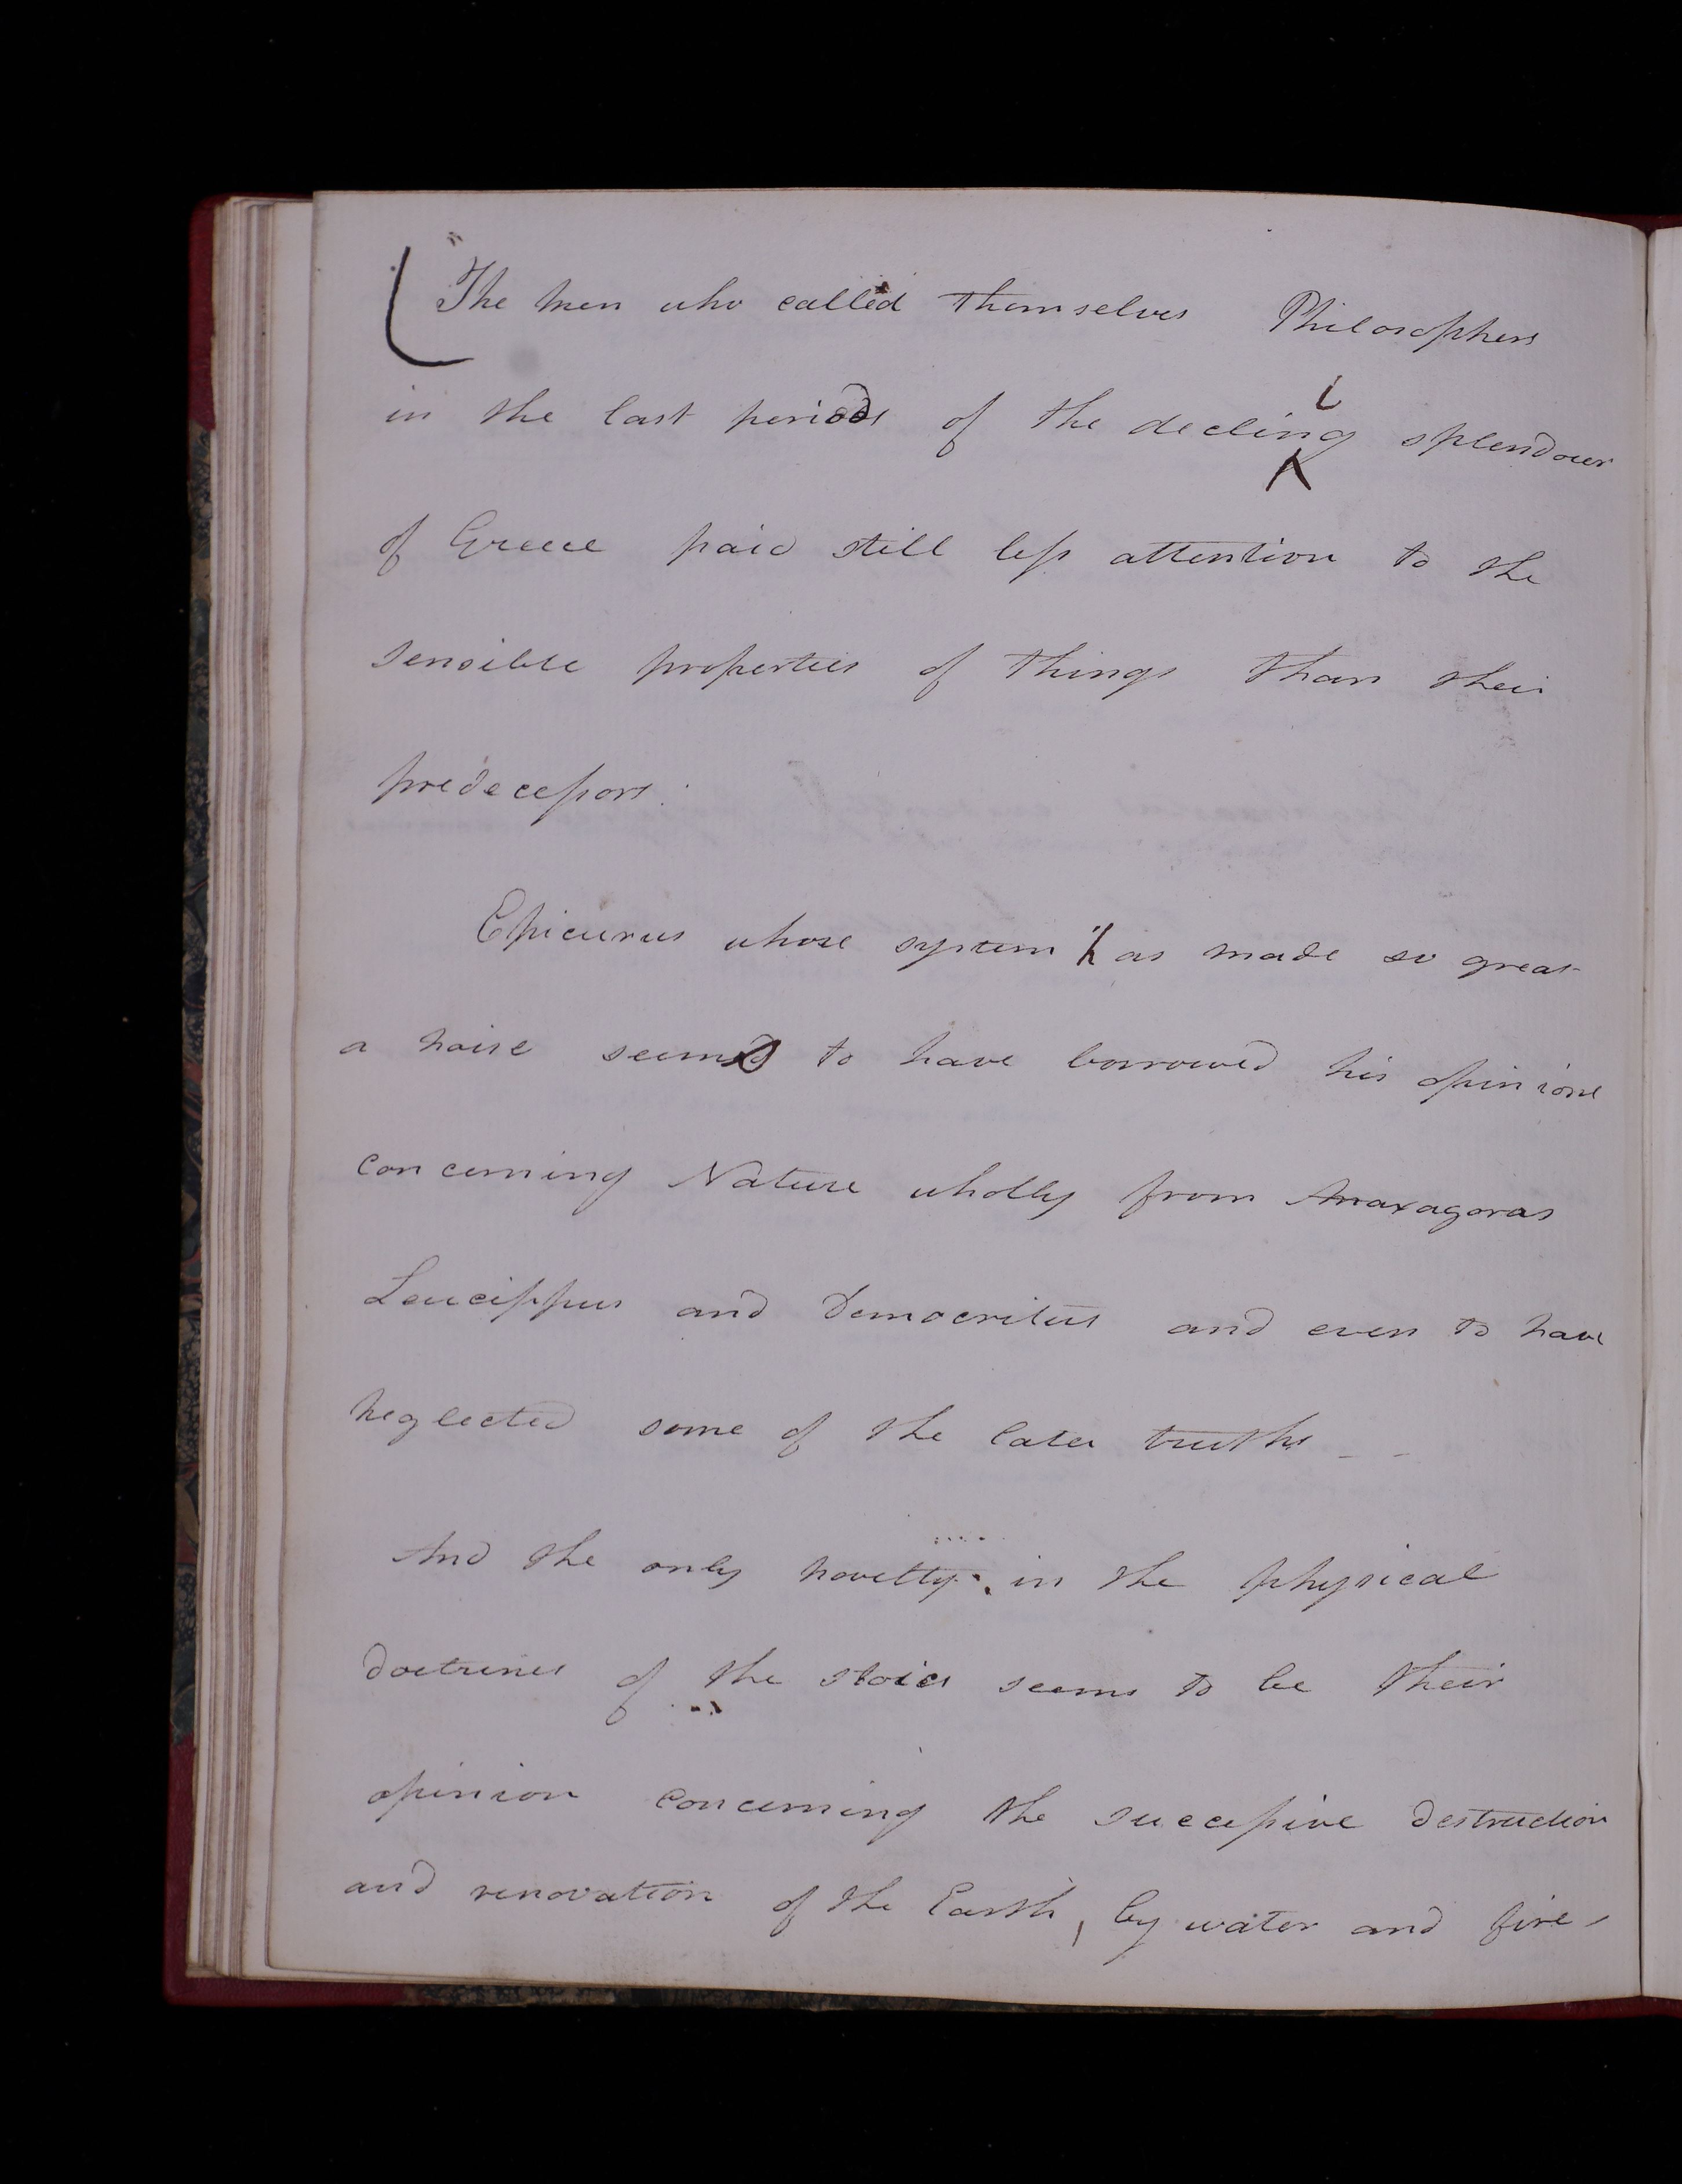 "The men who called themselves Philosophers
in the last periods of the declining splendour
of Greece paid still less attention to the
sensible properties of things than their
predecessors.
Epicurus whose system has made so great
a noise seems to have borrowed his opinions
concerning Nature wholly from Anaxagoras
Leucippus and Democritus and even to have
neglected some of the later truths _ _
And the only novelty in the physical
doctrines of the stoics seems to be their
opinion concerning the successive destruction
and renovation of the Earth, by water and fire -